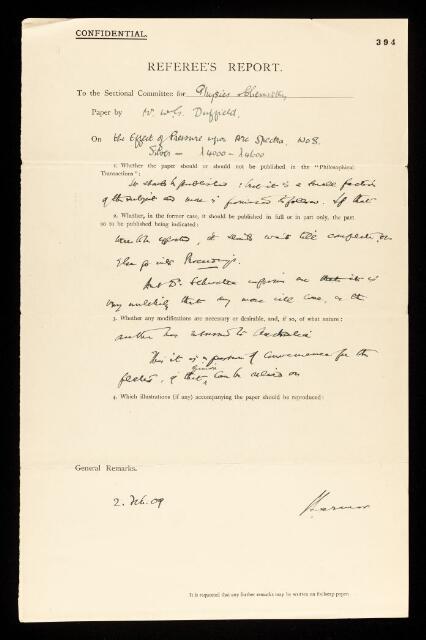 CONFIDENTIAL.
394
REFEREE'S REPORT.
To the Sectional Committee for Physics & Chemistry
Paper by Dr. W. G. Duffield,
On the Effect of Pressure upon Arc Spectra, No 3.
Silver — λ4000 – λ4600
1. Whether the paper should or should not be published in the "Philosophical
Transactions":
It should be published, but it is a small fraction
of the subject and more is promised to follow. If that
2. Whether, in the former case, it should be published in full or in part only, the part
so to be published being indicated:
were to be expected, it should wait till completed, or
else go into Proceedings.
But Dr. Schuster informs me that it is
very unlikely that any more will come, as the
3. Whether any modifications are necessary or desirable, and, if so, of what nature:
author has returned to Australia
Thus it is a question of convenience for the
if that opinion can be relied on
4. Which illustrations (if any) accompanying the paper should be reproduced:
General Remarks.
2. Feb. 09
J Larmor
It is requested that any further remarks may be written on foolscap paper.